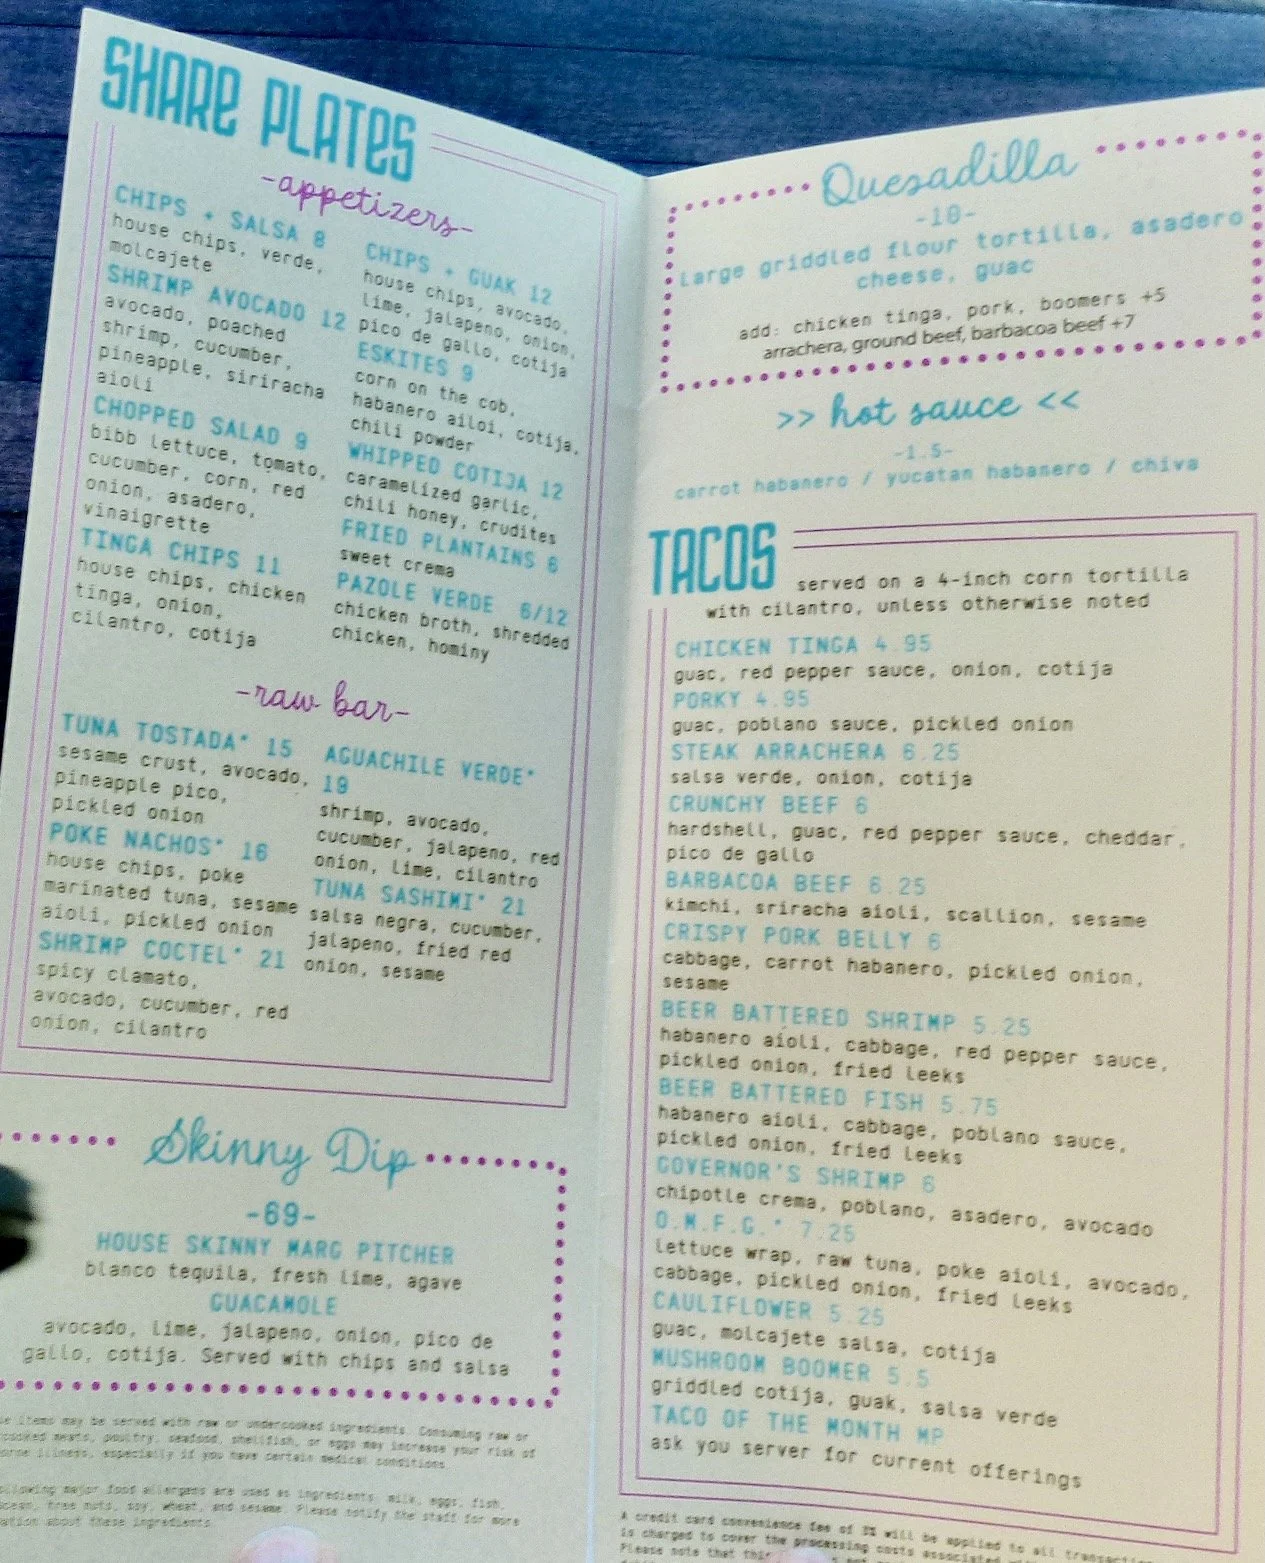 SHARE PLATES
-appetizers-
CHIPS + SALSA 8
house chips, verde,
molcajete
SHRIMP AVOCADO 12
avocado, poached
shrimp, cucumber,
pineapple, siriracha
aioli
CHOPPED SALAD 9
bibb lettuce, tomato,
cucumber, corn, red
onion, asadero,
vinaigrette
TINGA CHIPS 11
house chips, chicken
tinga, onion,
cilantro, cotija
CHIPS + GUAK 12
house chips, avocado,
lime, jalapeno, onion,
pico de gallo, cotija
ESKITES 9
corn on the cob,
habanero ailoi, cotija,
chili powder
WHIPPED COTIJA 12
caramelized garlic,
chili honey, crudites
FRIED PLANTAINS 6
sweet crema
PAZOLE VERDE 6/12
chicken broth, shredded
chicken, hominy
-raw bar-
TUNA TOSTADA* 15
sesame crust, avocado,
pineapple pico,
pickled onion
POKE NACHOS* 16
house chips, poke
marinated tuna, sesame
aioli, pickled onion
SHRIMP COCTEL* 21
spicy clamato,
avocado, cucumber, red
onion, cilantro
AGUACHILE VERDE*
19
shrimp, avocado,
cucumber, jalapeno, red
onion, lime, cilantro
TUNA SASHIMI* 21
salsa negra, cucumber,
jalapeno, fried red
onion, sesame
Skinny Dip
-69-
HOUSE SKINNY MARG PITCHER
blanco tequila, fresh lime, agave
GUACAMOLE
avocado, lime, jalapeno, onion, pico de
gallo, cotija. Served with chips and salsa
items may be served with raw or undercooked ingredients. Consuming raw or
meats, poultry, seafood, shellfish, or eggs may increase your risk of
illness, especially if you have certain medical conditions.
major food allergens are used as ingredients: milk, eggs, fish,
tree nuts, soy, wheat, and sesame. Please notify the staff for more
about these ingredients.
Quesadilla
-10-
large griddled flour tortilla, asadero
cheese, guac
add: chicken tinga, pork, boomers +5
arrachera, ground beef, barbacoa beef +7
>> hot sauce <<
-1.5-
carrot habanero / yucatan habanero / chiva
TACOS
served on a 4-inch corn tortilla
with cilantro, unless otherwise noted
CHICKEN TINGA 4.95
guac, red pepper sauce, onion, cotija
PORKY 4.95
guac, poblano sauce, pickled onion
STEAK ARRACHERA 6.25
salsa verde, onion, cotija
CRUNCHY BEEF 6
hardshell, guac, red pepper sauce, cheddar,
pico de gallo
BARBACOA BEEF 6.25
kimchi, sriracha aioli, scallion, sesame
CRISPY PORK BELLY 6
cabbage, carrot habanero, pickled onion,
sesame
BEER BATTERED SHRIMP 5.25
habanero aioli, cabbage, red pepper sauce,
pickled onion, fried leeks
BEER BATTERED FISH 5.75
habanero aioli, cabbage, poblano sauce,
pickled onion, fried leeks
GOVERNOR'S SHRIMP 6
chipotle crema, poblano, asadero, avocado
O.M.F.G.* 7.25
lettuce wrap, raw tuna, poke aioli, avocado,
cabbage, pickled onion, fried leeks
CAULIFLOWER 5.25
guac, molcajete salsa, cotija
MUSHROOM BOOMER 5.5
griddled cotija, guak, salsa verde
TACO OF THE MONTH MP
ask you server for current offerings
A credit card convenience fee of 3% will be applied to all
is charged to cover the processing costs associated
Please note that this